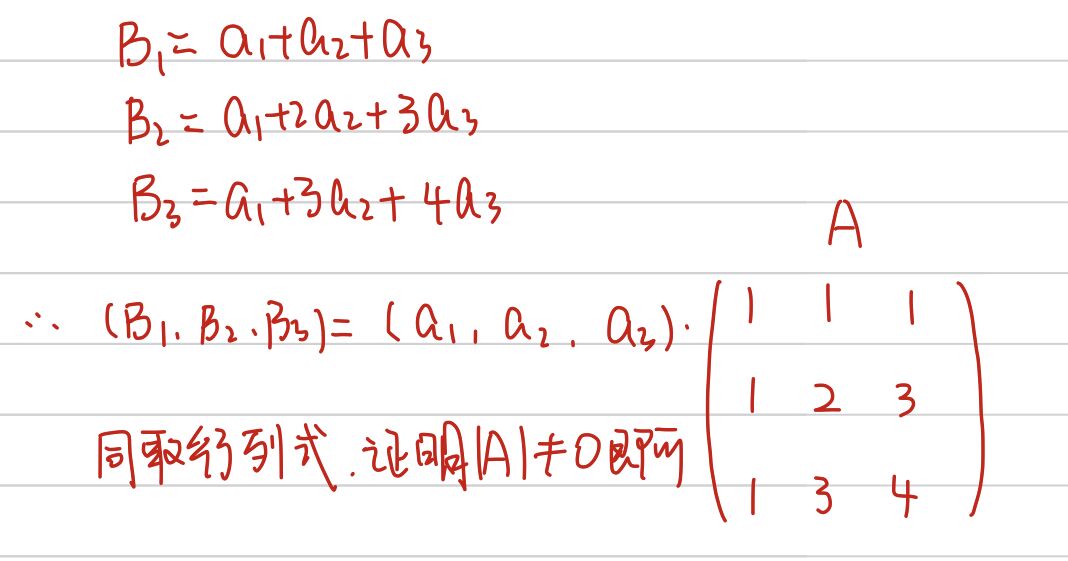 B₁ = a₁+a₂+a₃
B₂ = a₁+2a₂+3a₃
B₃ = a₁+3a₂+4a₃
A
∵ (B₁, B₂, B₃) = (a₁, a₂, a₃)·
1 1 1
1 2 3
1 3 4
同取行列式.证明|A|≠0即可